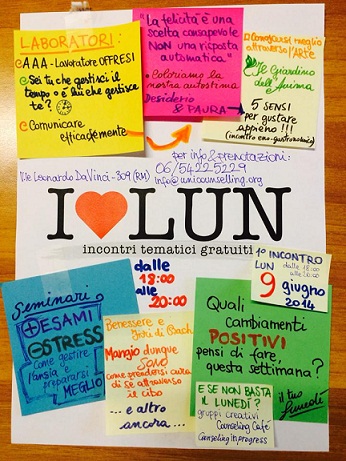 LABORATORI:
AAA - Lavoratore OFFRESI
Sei tu che gestisci il
tempo o è lui che gestisce
te?
Comunicare
efficacemente
"La felicità è una
scelta consapevole
NON una risposta
automatica"
Coloriamo la
nostra autostima
Desiderio
& PAURA
Conoscersi meglio
attraverso l'Arte
Il Giardino
dell'Anima
5 SENSI
per gustare
appieno!!!
(incontro eno-gustoso)
per info & prenotazioni:
06/54225229
info@unicounselling.org
V.le Leonardo DaVinci - 309 (RM)
I LUN
incontri tematici gratuiti
dalle
18:00
alle
20:00
1° INCONTRO
LUN dalle 18:00
alle 20:00
9 giugno
2014
Seminari
+ESAMI
-STRESS
come gestire
l'ansia e
prepararsi
al MEGLIO
Benessere e
Fiori di Bach
Mangio dunque
Sono
come prendersi cura
di Sé attraverso
il cibo
... e altro
ancora...
Quali
cambiamenti
POSITIVI
pensi di fare,
questa settimana?
il tuo
lunedì
E SE NON BASTA
IL LUNEDÌ?
gruppi creativi
Counseling Café
Counseling in progress